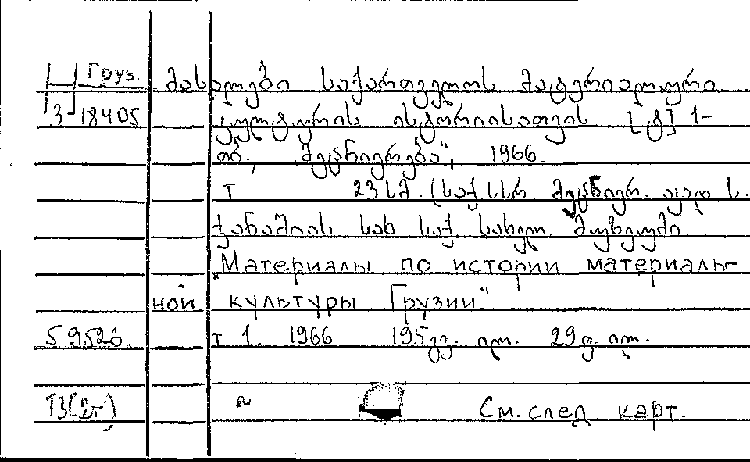 Груз. მასალები საქართველოს მატერიალური
3-18405 კულტურის ისტორიისათვის [ტ] 1-
თბ., „მეცნიერება", 1966.
т 23 სმ. (საქ სსრ მეცნიერ. აკად ს.
ჯანაშიას სახ საქ. სახელ. მუზეუმი
„Материалы по истории материаль-
ной культуры Грузии"
59526. т 1. 1966 195 გვ. ილ. 29 ფ. ილ.
Т3(2г) ~ См. след карт.